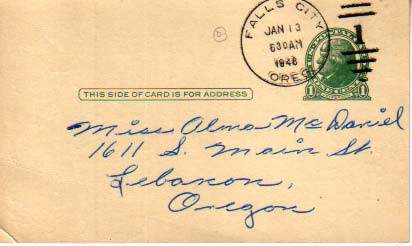 FALLS CITY
JAN 13
630AM
OREG.
1
THIS SIDE OF CARD IS FOR ADDRESS
1 1
Miss Alma McDaniel
1611 S. Main St.
Lebanon,
Oregon